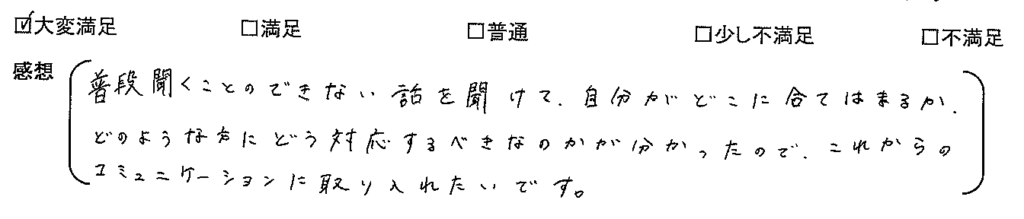 ☑大変満足 □満足 □普通 □少し不満足 □不満足
感想 普段聞くことのできない話を聞けて、自分がどこに合てはまるか、
どのような方にどう対応するべきなのかが分かったので、これからの
コミュニケーションに取り入れたいです。